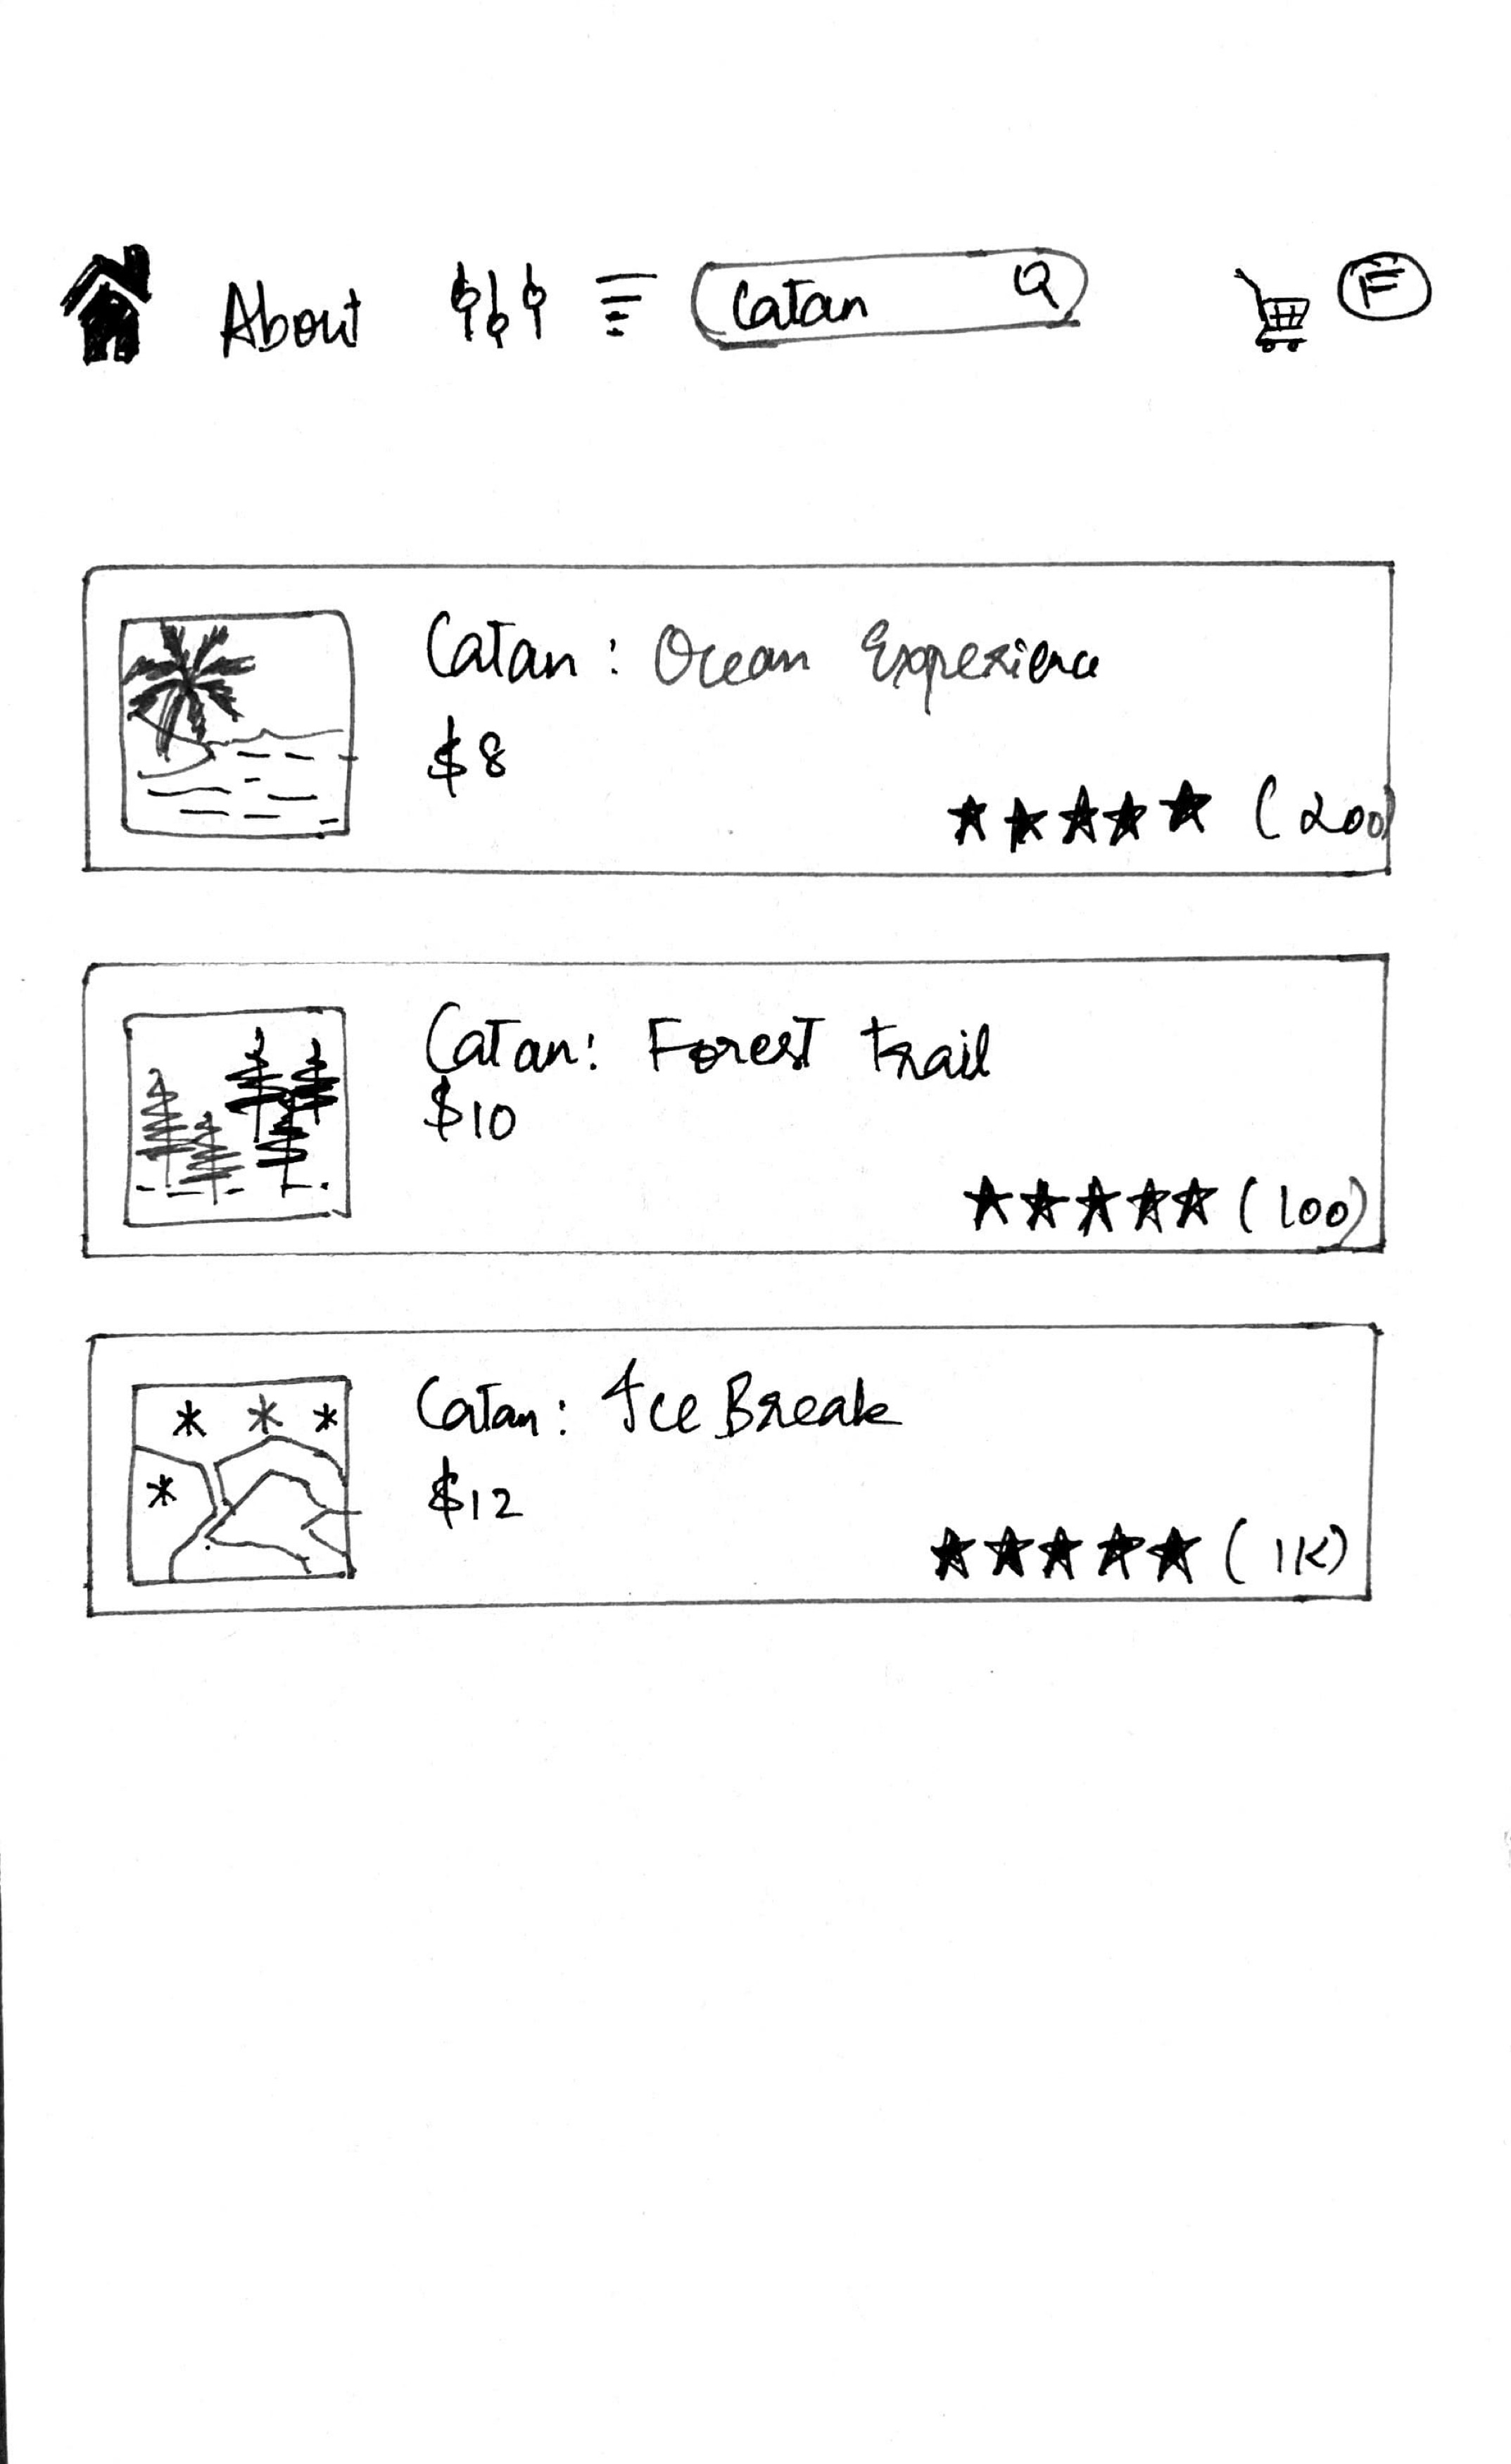 About Catan F
Catan: Ocean Experience
$8
(200)
Catan: Forest trail
$10
(100)
Catan: Ice Break
$12
(1K)